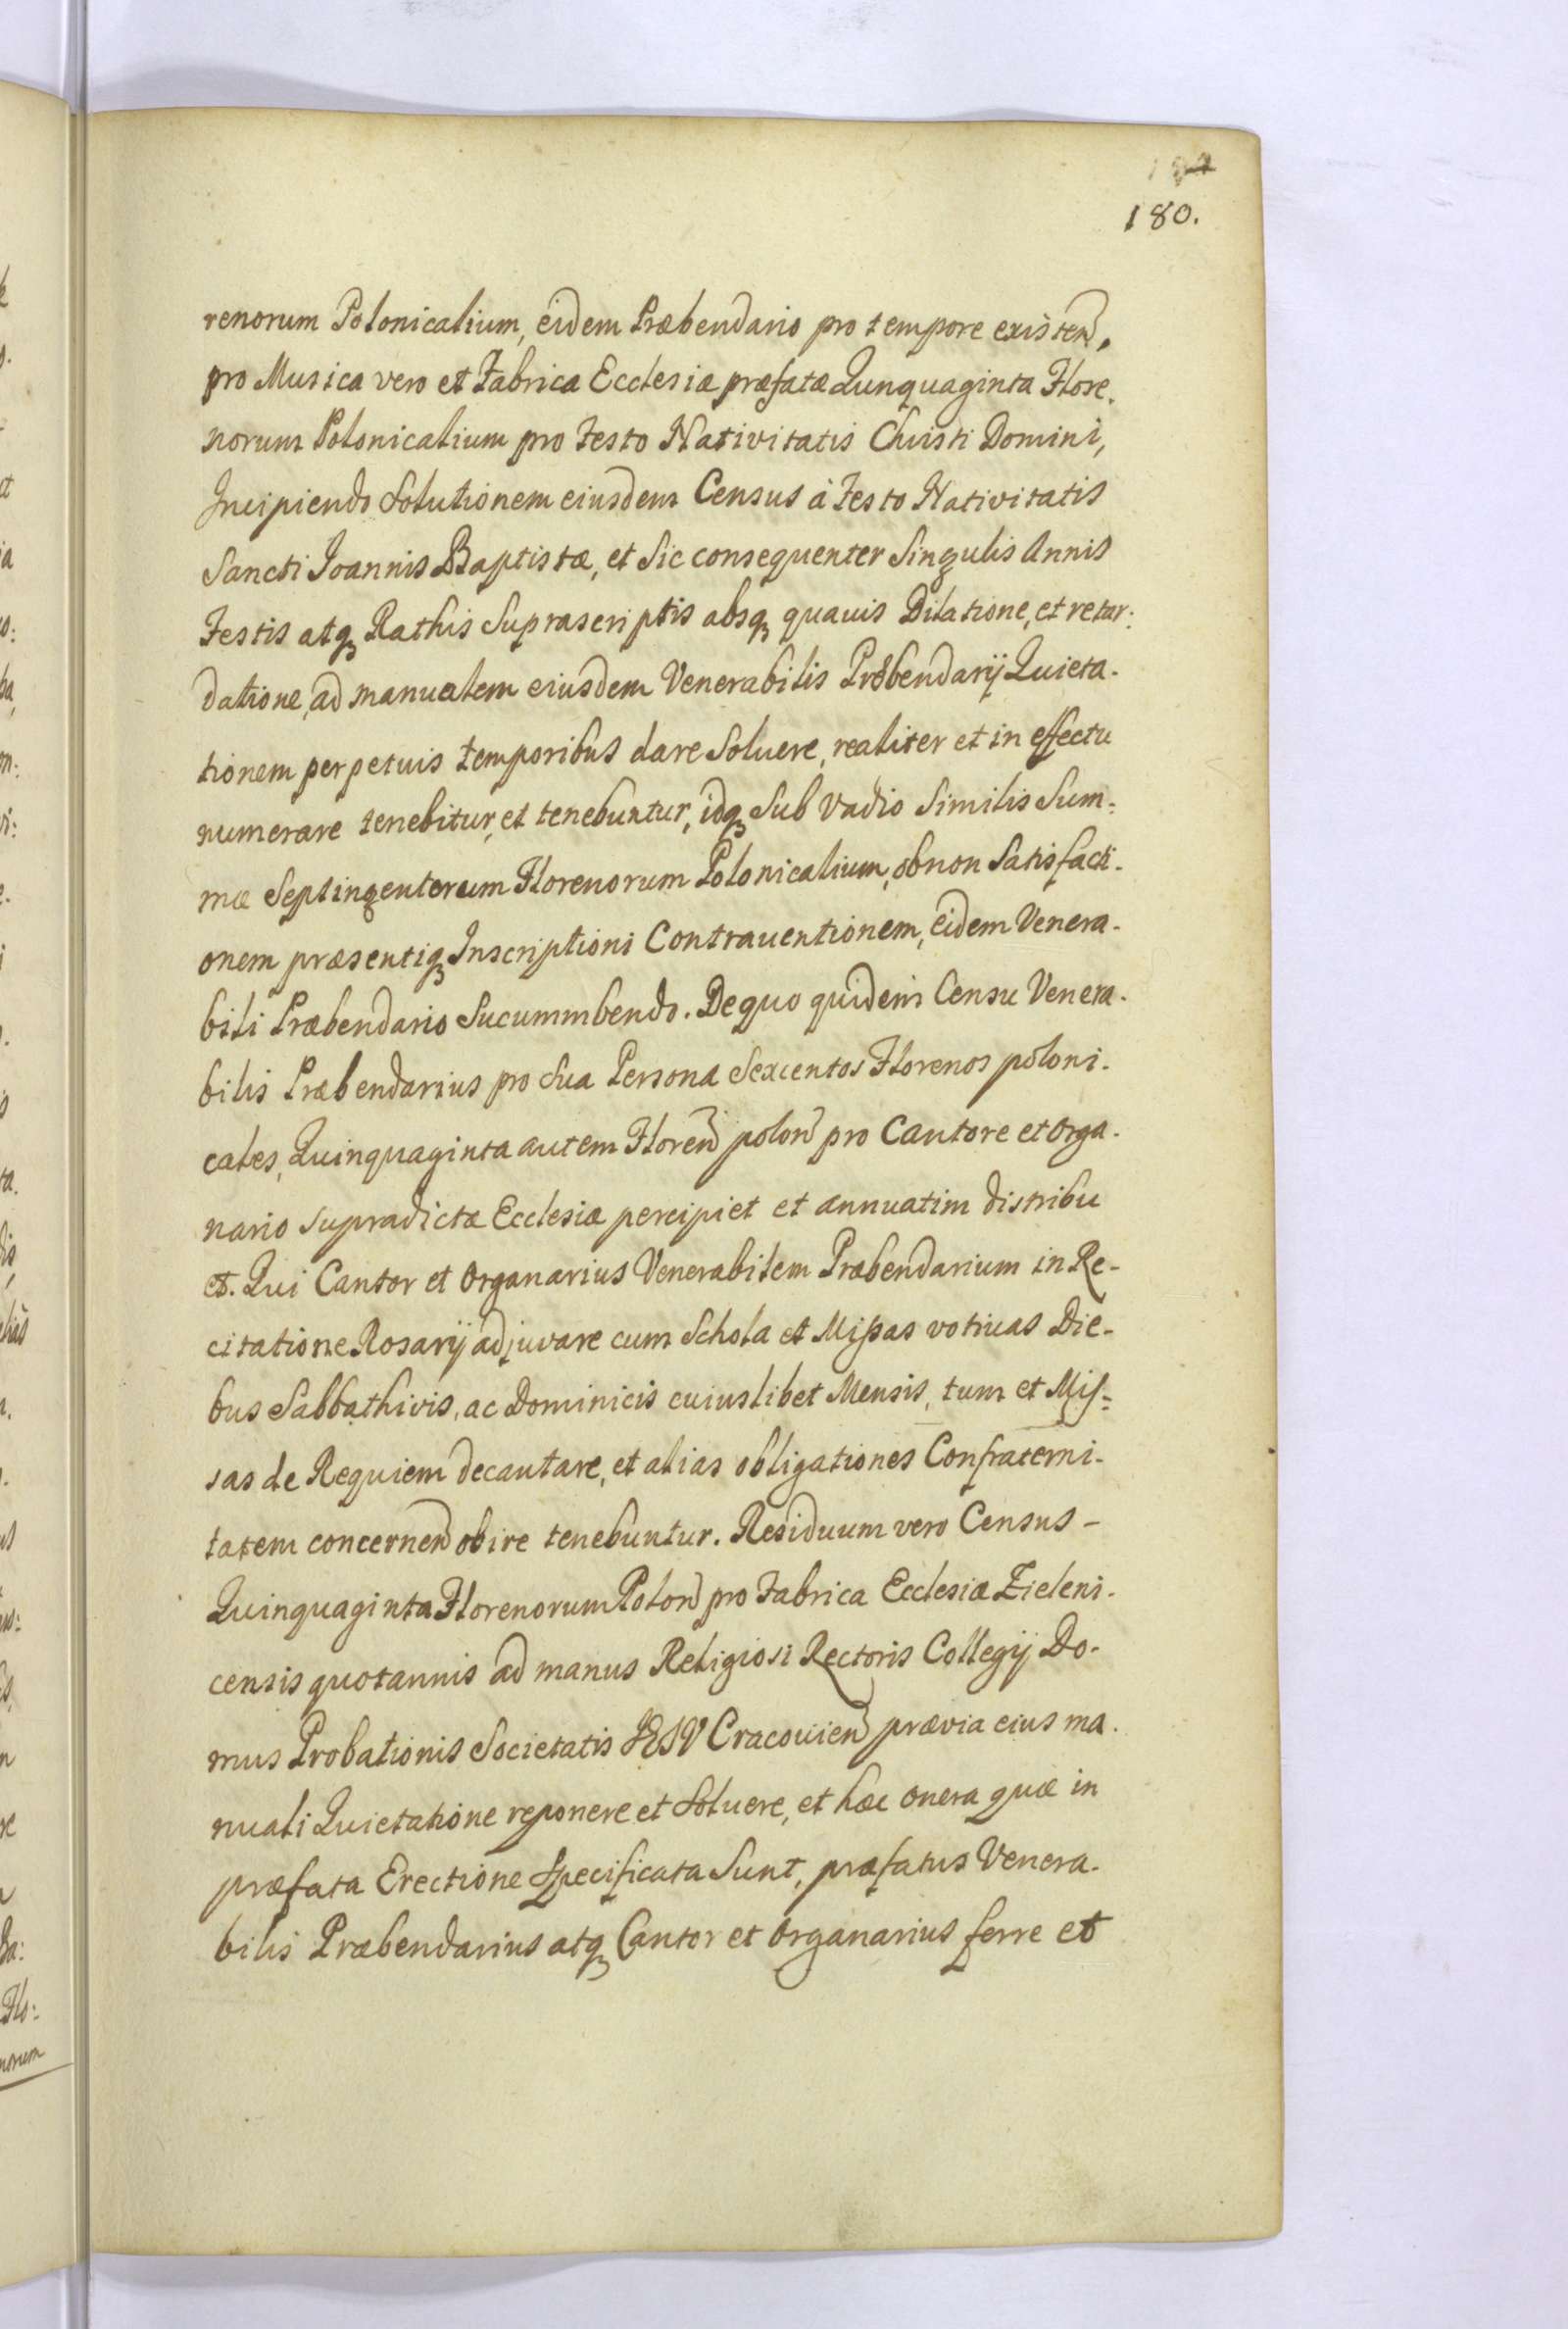 180.
renorum Polonicalium, eidem Præbendario pro tempore existen,
pro Musica vero et Fabrica Ecclesiæ præfatæ Qunquaginta Flore-
norum Polonicalium pro Festo Nativitatis Christi Domini,
Incipiendo Solutionem eiusdem Census à Festo Nativitatis
Sancti Joannis Baptistæ, et Sic consequenter Singulis Annis
Festis atq Rathis Suprascriptis absq quavis Dilatione, et retar:
datione, ad manualem eiusdem Venerabilis Præbendarij Quieta-
tionem perpetuis temporibus dare Soluere, realiter et in effectu
numerare tenebitur, et tenebuntur, idq Sub Vadio Similis Sum:
mæ Septingentorum Florenorum Polonicalium, ob non Satisfacti-
onem præsentiq Inscriptioni Contrauentionem, eidem Venera-
bili Præbendario Sucummbendo. De quo quidem Censu Venera-
bilis Præbendarius pro Sua Persona Sexcentos Florenos poloni-
cales, Quinquaginta autem Floren polon pro Cantore et Orga-
nario supradictæ Ecclesiæ percipiet et annuatim distribu
et. Qui Cantor et Organarius Venerabilem Præbendarium in Re-
citatione Rosarij adjuvare cum Schola et Missas votivas Die-
bus Sabbathivis, ac Dominicis cuiuslibet Mensis, tum et Mis:
sas de Requiem decantare, et alias obligationes Confraterni-
tatem concernen obire tenebuntur. Residuum vero Census -
Quinquaginta Florenorum Polon pro Fabrica Ecclesiæ Zieleni-
censis quotannis ad manus Religiosi Rectoris Collegij Do-
mus Probationis Societatis JESV Cracouien prævia eius ma-
nuali Quietatione reponere et Soluere, et hæc onera quæ in
præfata Erectione Specificata Sunt, præfatus Venera-
bilis Præbendarius atq Cantor et Organarius ferre et